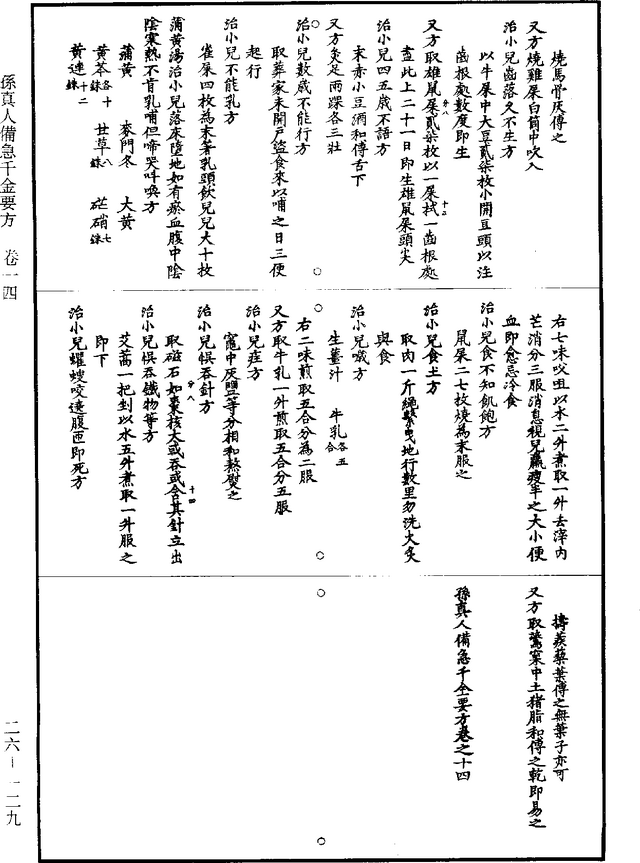 燒馬骨灰傅之
又方燒雞屎白筒中吹入
治小兒齒落久不生方
以牛屎中大豆貳柒枚小開豆頭以注
齒根處數度即生
又方取雄鼠屎貳柒枚以一屎拭一齒根處
盡此上二十一日即生雄鼠屎頭尖
治小兒四五歲不語方
末赤小豆酒和傅舌下
又方灸足兩踝各三壯
治小兒數歲不能行方
取葬家未開戶盜食來以哺之日三便
起行
治小兒不能乳方
雀屎四枚為末著乳頭飲兒兒大十枚
蒲黃湯治小兒落床墮地如有瘀血腹中陰
陰寒熱不肯乳哺但啼哭叫喚方
蒲黃 麥門冬 大黃
黃芩各十銖 甘草八銖 芒硝七銖
黃連十二銖
右七味㕮咀以水二升煮取一升去滓內
芒消分三服消息視兒羸瘦半之大小便
血即愈忌冷食
治小兒食不知飢飽方
鼠屎二七枚燒為末服之
治小兒食土方
取肉一斤繩繫曳地行數里勿洗火炙
與食
治小兒噦方
生薑汁 牛乳各五合
右二味煎取五合分為二服
又方取牛乳一升煎取五合分五服
治小兒疰方
竈中灰鹽等分相和熬熨之
治小兒悞吞針方
取磁石如棗核大或吞或含其針立出
治小兒悞吞鐵物等方
艾蒿一把剉以水五升煮取一升服之
即下
治小兒蠼螋咬遶腹匝即死方
擣蒺藜葉傅之無葉子亦可
又方取鷰窠中土猪脂和傅之乾即易之
孫真人備急千金要方卷之十四
孫真人備急千金要方 卷一四
二六－一二九
十三
十四